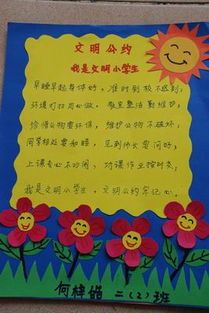 文明公约
我是文明小学生
早睡早起身体好，准时到校不迟到，
环境打扫用心做，教室整洁勤维护，
珍惜公物爱环保，维护公物不破坏，
同学相处要和睦，见到师长要问好，
上课专心不吵闹，功课作业按时交，
我是文明小学生，文明公约牢记心。
二（2）班